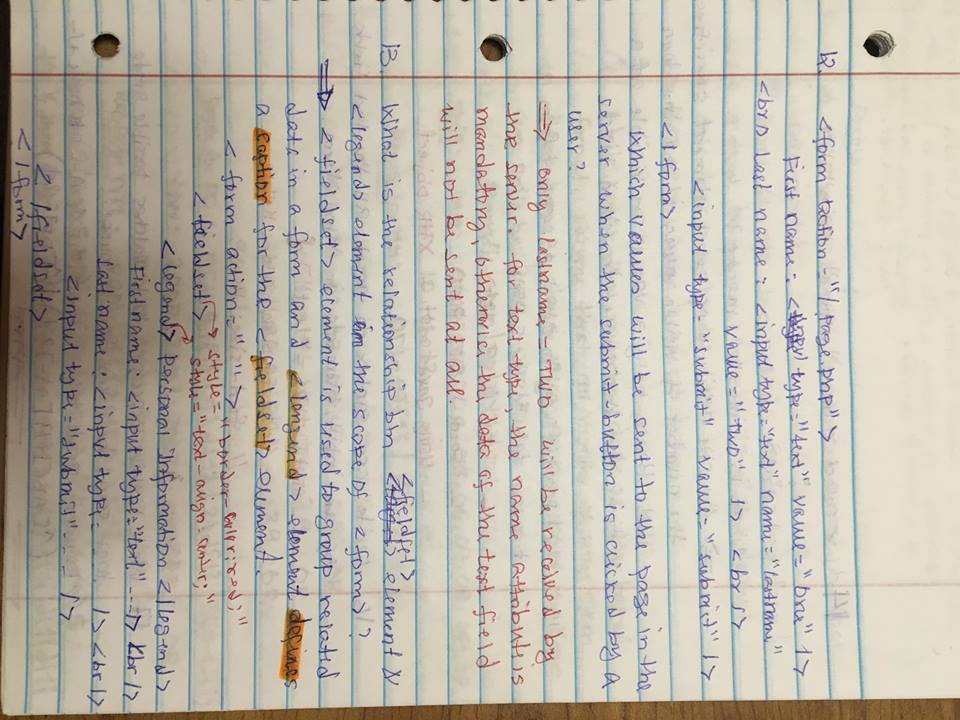 12. <form action = "/page.php">
First name: < type = "text" value = "one" />
<br> last name: <input type="text" name="lastname"
value = "Two" /> <br>
<input type = "submit" value = "submit" />
</form>
Which values will be sent to the page in the
server when the submit-button is clicked by a
user?
=> only lastname = Two will be received by
the server. for text type, the name attribute is
mandatory, otherwise the data of the text field
will not be sent at all.
13. What is the relationship b/n <fieldset> element &
<legend> element in the scope of <form>?
=> <fieldset> element is used to group related
data in a form and <legend> element defines
a caption for the <fieldset> element.
< form action = " ">
<fieldset> style = "border-color:red;"
style = "text-align: center;"
<legend> personal information </legend>
First name: <input type="text" ---/> <br/>
Last name: <input type= --- /> <br/>
<input type = "submit" --- />
</fieldset>
</form>